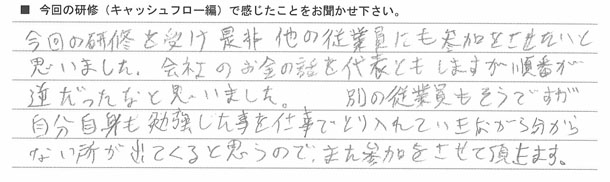 ■ 今回の研修（キャッシュフロー編）で感じたことをお聞かせ下さい。
今回の研修を受け是非他の従業員にも参加をさせたいと
思いました。会社のお金の話を代表ともしますが順番が
逆だったなと思いました。　別の従業員もそうですが
自分自身も勉強した事を仕事でとり入れていきながら分から
ない所が出てくると思うので、また参加をさせて頂きます。